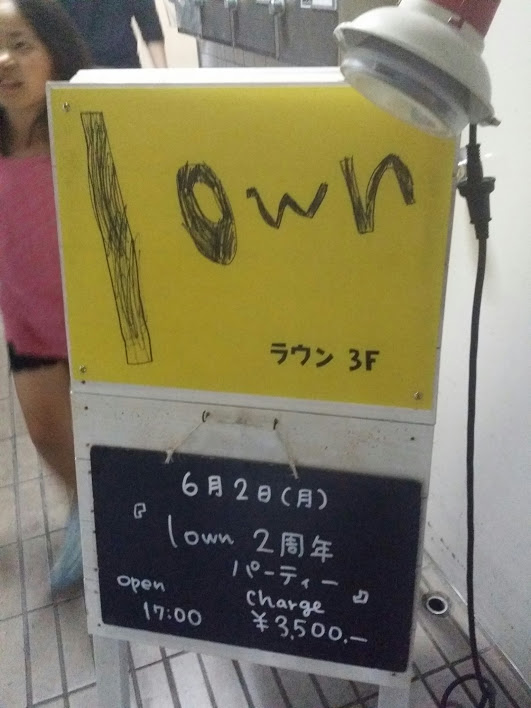 lown
ラウン 3F
6月2日(月)
『lown 2周年
パーティー』
open
17:00
Charge
¥3,500.—